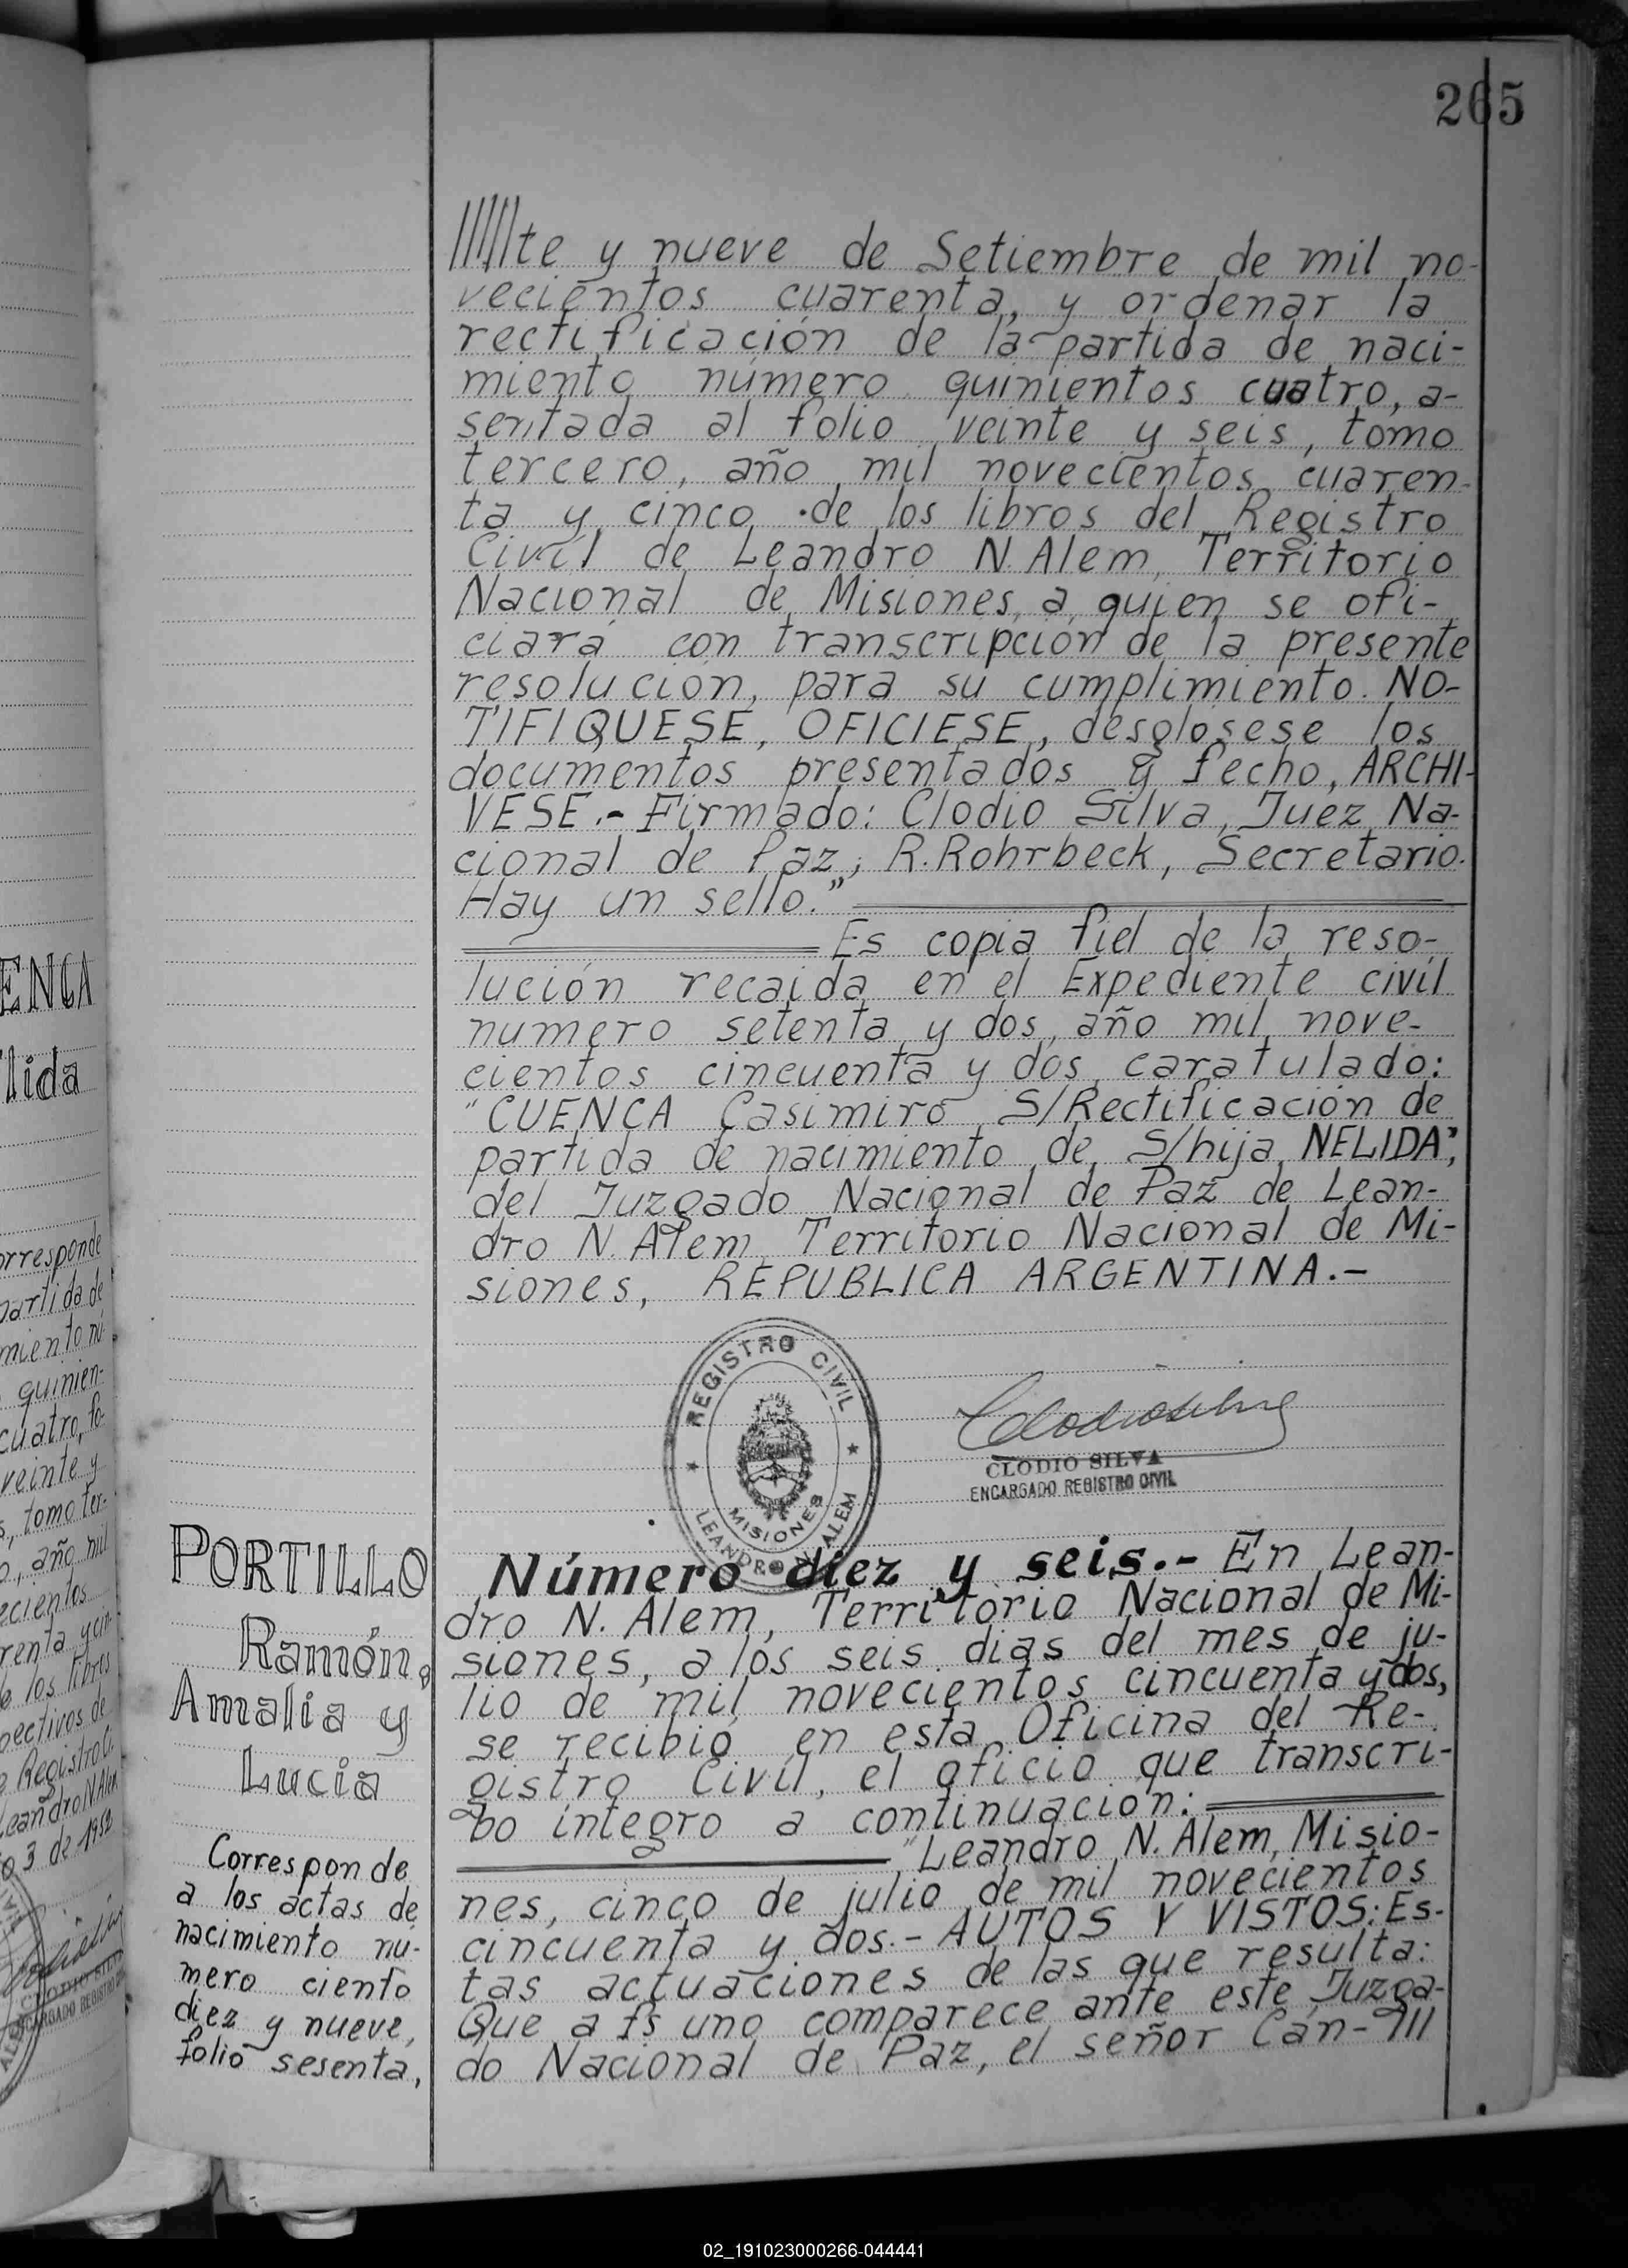 265
//////te y nueve de Setiembre de mil no-
vecientos cuarenta, y ordenar la
rectificación de la partida de naci-
miento número quinientos cuatro, a-
sentada al folio veinte y seis, tomo
tercero, año mil novecientos cuaren-
ta y cinco de los libros del Registro
Civil de Leandro N. Alem, Territorio
Nacional de Misiones, a quien se ofi-
ciará con transcripción de la presente
resolución, para su cumplimiento. NO-
TIFIQUESE, OFICIESE, desglosese los
documentos presentados y fecho, ARCHI-
VESE.- Firmado: Clodio Silva, Juez Na-
cional de Paz; R. Rohrbeck, Secretario.
Hay un sello."
Es copia fiel de la reso-
lución recaida en el Expediente civil
numero setenta y dos, año mil nove-
cientos cincuenta y dos, caratulado:
"CUENCA Casimiro S/Rectificación de
partida de nacimiento de S/hija NELIDA",
del Juzgado Nacional de Paz de Lean-
dro N. Alem, Territorio Nacional de Mi-
siones, REPUBLICA ARGENTINA.-
REGISTRO CIVIL
MISIONES
LEANDRO N. ALEM
Clodio Silva
CLODIO SILVA
ENCARGADO REGISTRO CIVIL
PORTILLO
Ramón,
Amalia y
Lucia
Corresponde
a los actas de
nacimiento nu-
mero ciento
diez y nueve,
folio sesenta,
Número diez y seis.- En Lean-
dro N. Alem, Territorio Nacional de Mi-
siones, a los seis dias del mes de ju-
lio de mil novecientos cincuenta y dos,
se recibió en esta Oficina del Re-
gistro Civil, el oficio que transcri-
bo integro a continuación:
"Leandro N. Alem, Misio-
nes, cinco de julio de mil novecientos
cincuenta y dos.- AUTOS Y VISTOS: Es-
tas actuaciones de las que resulta:
Que a fs uno comparece ante este Juzga-
do Nacional de Paz, el señor Cán-///
ENCA
lida
orresponde
partida de
miento nú-
quinien-
cuatro, fo-
veinte y
tomo ter-
año mil
ecientos
renta y cin-
los libros
pectivos de
Registro Ci-
Leandro N. Alem
3 de 1952
02_191023000266-044441